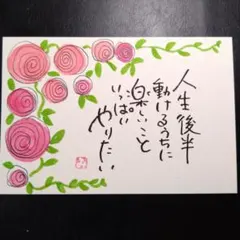 人生後半
動けるうちに
楽しいこと
いっぱい
やりたい